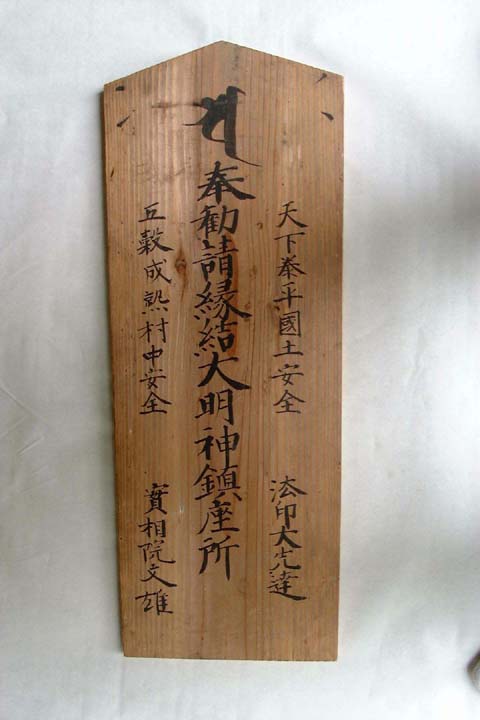 天下泰平國土安全　法印大先達
奉勧請縁結大明神鎮座所
五穀成熟村中安全　實相院文雄